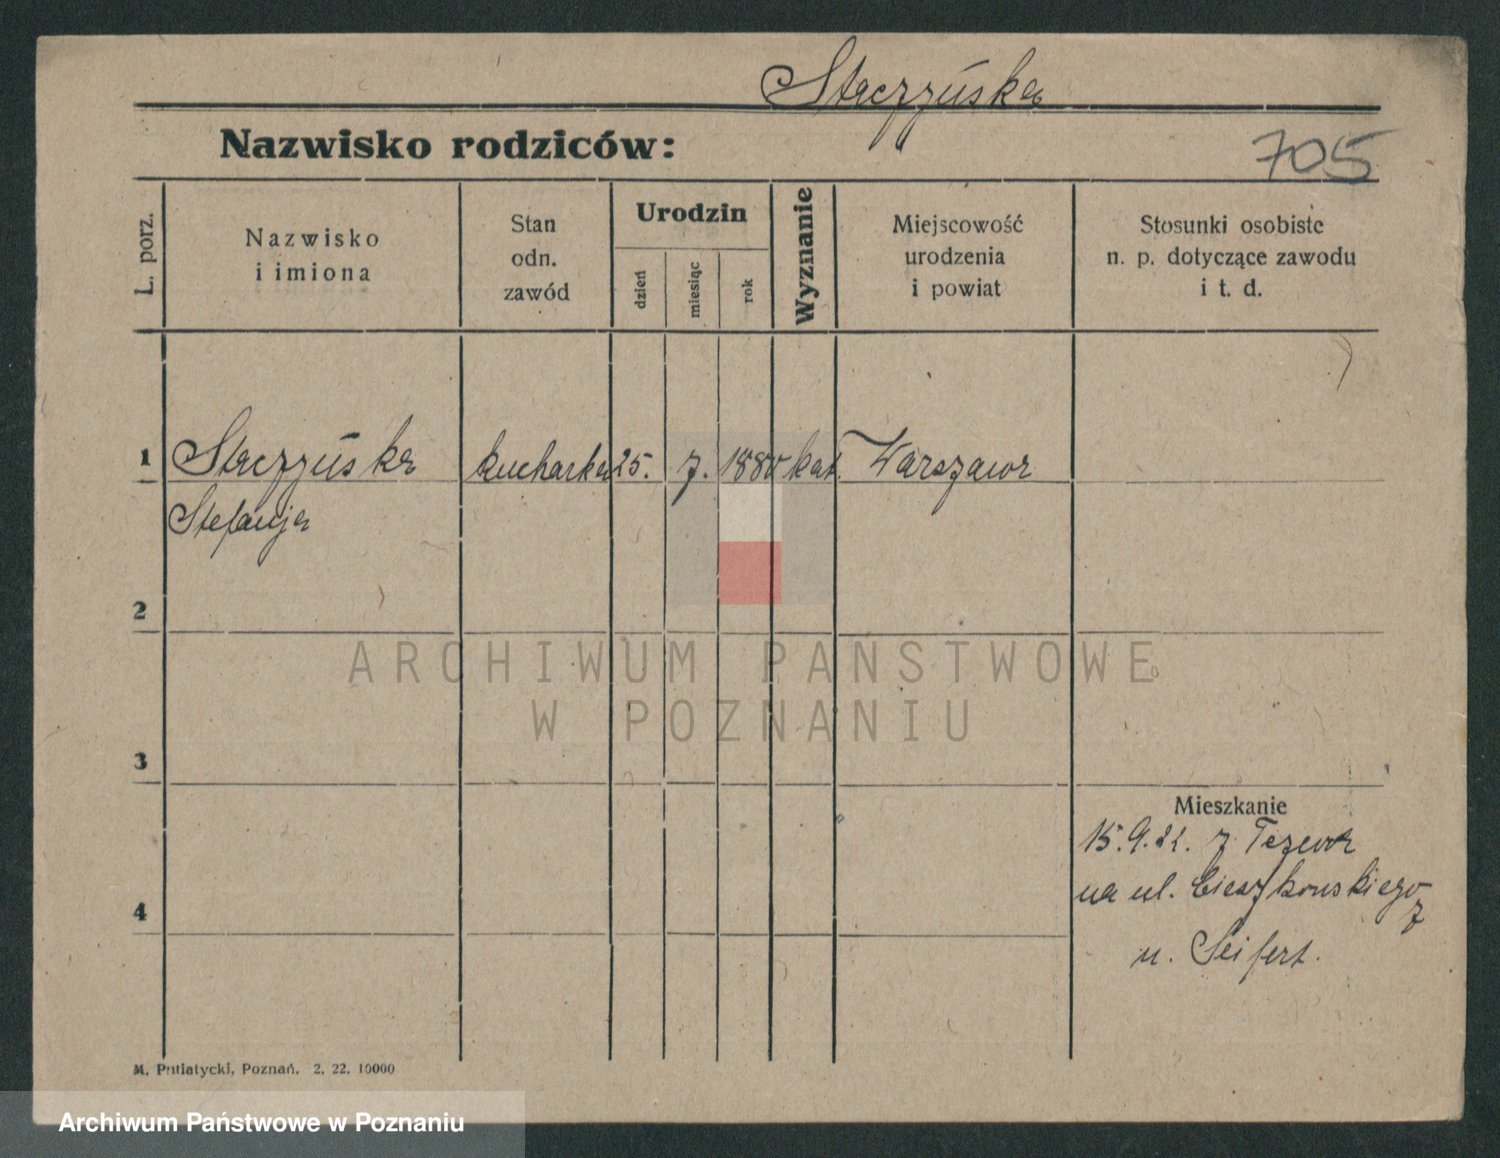 Staczyńska
Nazwisko rodziców:
705
L. porz.
Nazwisko
i imiona
Stan
odn.
zawód
Urodzin
dzień
miesiąc
rok
Wyznanie
Miejscowość
urodzenia
i powiat
Stosunki osobiste
n. p. dotyczące zawodu
i t. d.
1
Staczyńska kucharka 25. 7. 1880 kat. Warszawa
Stefanja
2
ARCHIWUM PAŃSTWOWE
W POZNANIU
3
Mieszkanie
15.9.22. z Tczewa
na ul. Cieszkowskiego 7
4
u. Seifert.
M. Putiatycki, Poznań. 2. 22. 10000
Archiwum Państwowe w Poznaniu